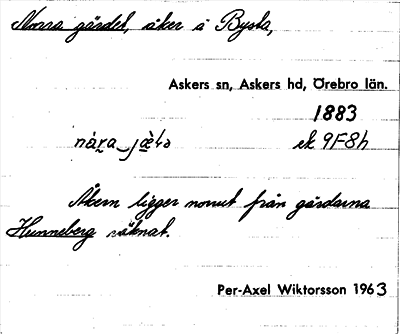 Norra gärdet, åker å Bysta,
Askers sn, Askers hd, Örebro län.
1883
ek 9F8h
Åkern ligger norrut från gårdarna
Hunneberg räknat.
Per-Axel Wiktorsson 1963